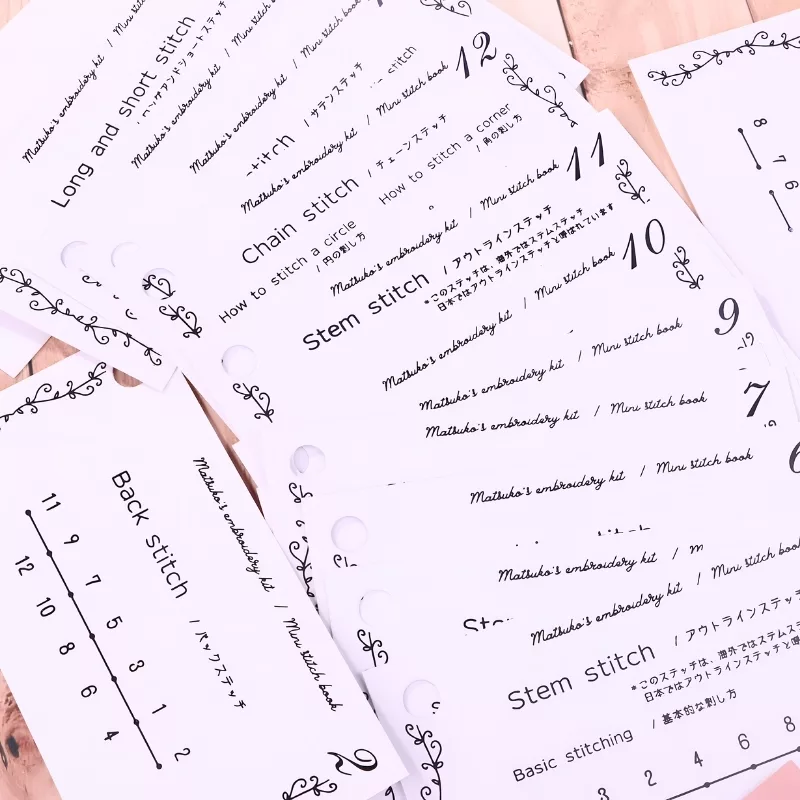 Matsuko's embroidery kit / Mini
Long and short stitch
/ ロングアンドショートステッチ
Matsuko's embroidery kit / Mini stitch
Matsuko's embroidery kit / Mini stitch book
/ サテンステッチ
stitch
Matsuko's embroidery kit / Mini stitch book
12
Chain stitch / チェーンステッチ
How to stitch a circle
/ 円の刺し方
How to stitch a corner
/ 角の刺し方
Matsuko's embroidery kit / Mini stitch book
11
Stem stitch / アウトラインステッチ
*このステッチは、海外ではステムステッチ
日本ではアウトラインステッチと呼ばれています
Matsuko's embroidery kit / Mini stitch book
10
Matsuko's embroidery kit / Mini stitch book
9
Matsuko's embroidery kit / Mini stitch book
7
Matsuko's embroidery kit / Mini stitch book
6
Matsuko's embroidery kit /
Matsuko's embroidery kit / Mini stitch book
Stem stitch / アウトラインステッ
*このステッチは、海外ではステムス
日本ではアウトラインステッチと
Basic stitching / 基本的な刺し方
3 2 4 6 8
8 7 6
Matsuko's embroidery kit / Mini stitch book
2
Back stitch / バックステッチ
11 9 7 5 3 1
12 10 8 6 4 2